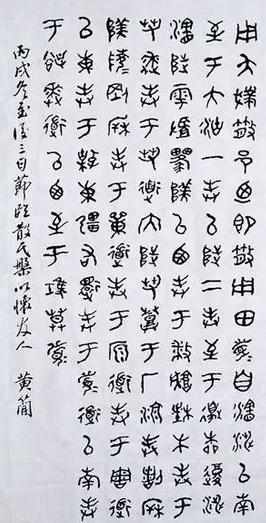 用夨撲散邑乃即散用田眉自瀗涉以南
至于大沽一封以陟二封至于邊柳復涉
瀗陟雩𨽿以西封于播城楮木
封于芻道内陟芻登于厂湶封割柝
陕陵剛柝封于單道封于原道封于周道
以東封于棹東疆右還封于眉道以南封
于逨道以西至于莫眉
丙戌冬至後三日節臨散氏盤以懷友人 黄簡